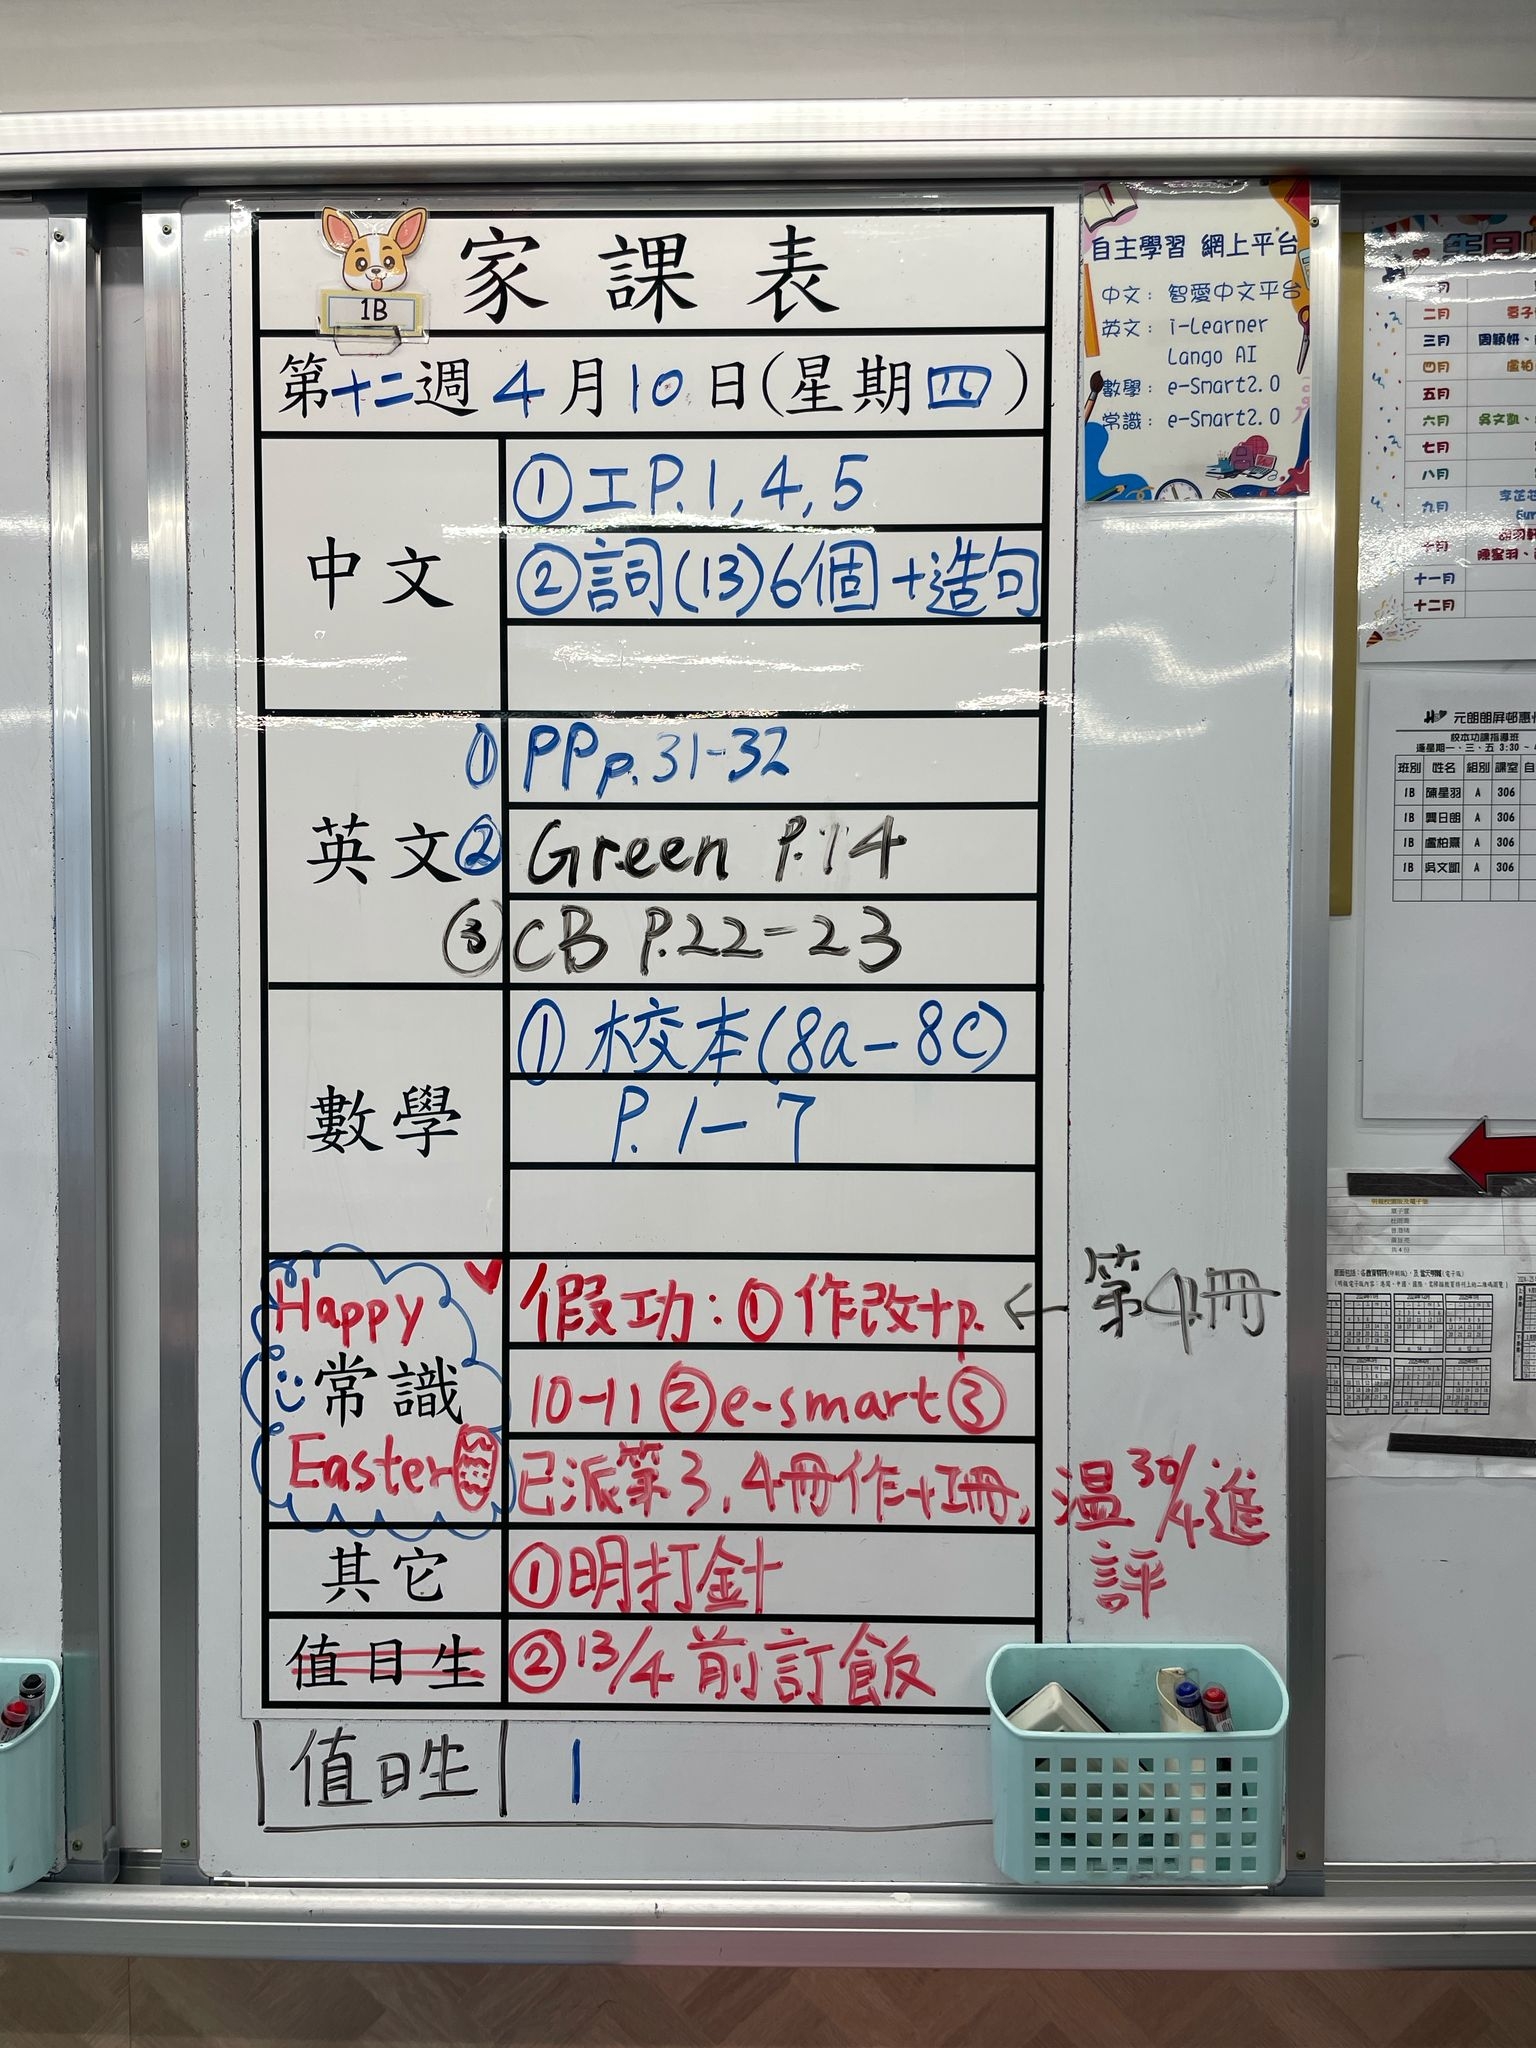 家課表
1B
第十二週4月10日(星期四)
中文
①工P.1,4,5
②詞(13)6個+造句
英文
①PP p.31-32
②Green P.14
③CB P.22-23
數學
①校本(8a-8c)
P.1-7
Happy
常識
Easter
假功:①作改+p.←第4冊
10-11②e-smart③
已派第3,4冊作+工冊,溫30/4進
評
其它
①明打針
值日生
②13/4前訂飯
值日生 1
自主學習 網上平台
中文:智愛中文平台
英文:i-Learner
Lango AI
數學:e-Smart2.0
常識:e-Smart2.0
二月
三月
四月
五月
六月
七月
八月
九月
十月
十一月
十二月
校本功課指導班
逢星期一、三、五 3:30 ~
班別 姓名 組別 課室
1B 陳星羽 A 306
1B 龔日朗 A 306
1B 盧柏熹 A 306
1B 吳文凱 A 306